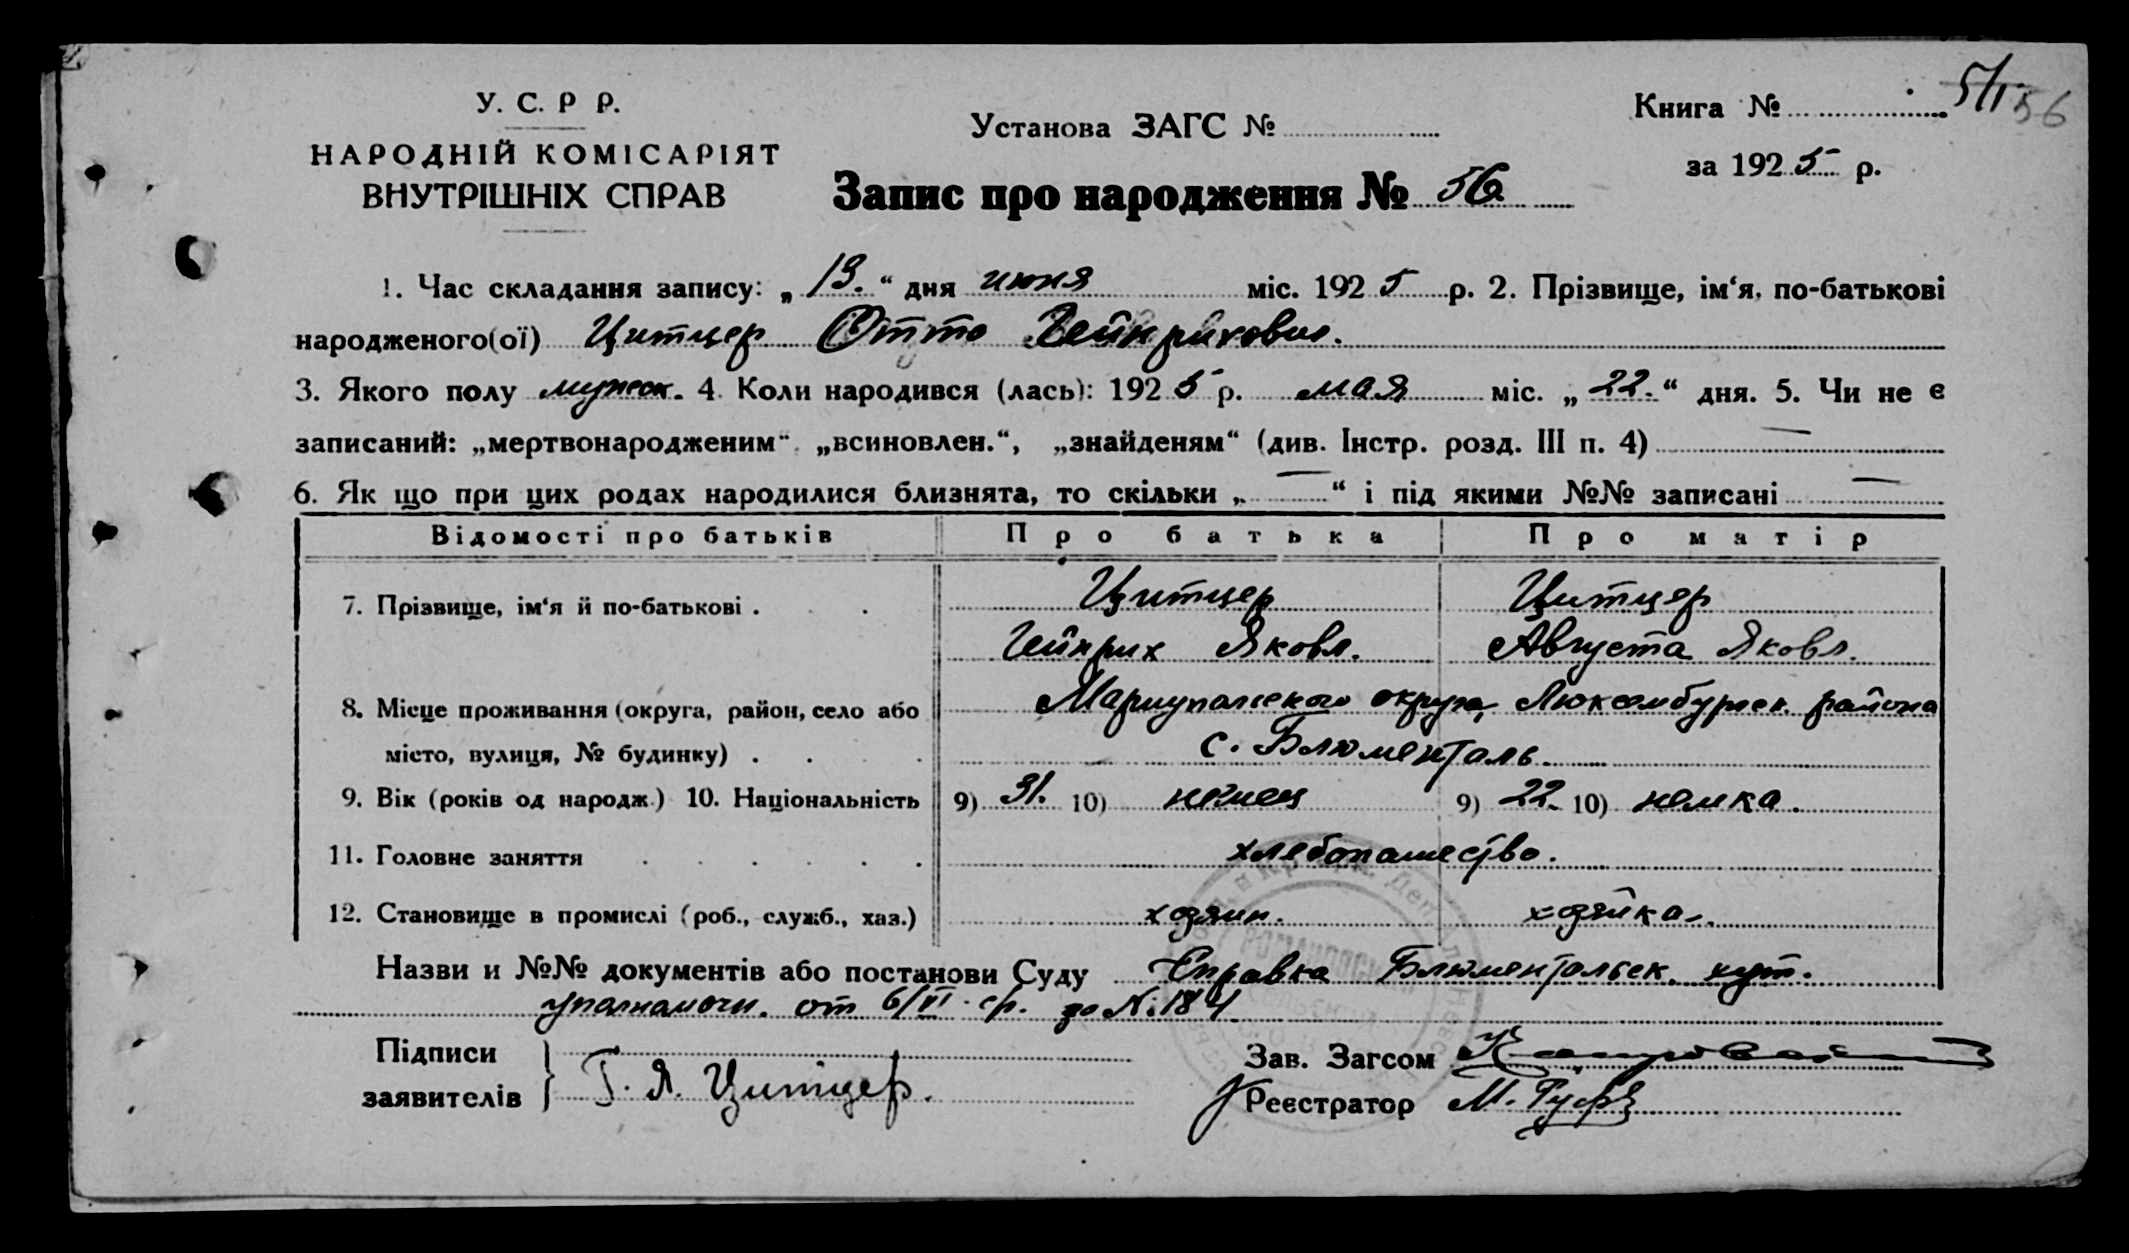 У. С. Р Р.
НАРОДНІЙ КОМІСАРІЯТ
ВНУТРІШНІХ СПРАВ
Установа ЗАГС №
Запис про народження № 56
Книга № 56
за 1925 р.
1. Час складання запису: „13.“ дня июня міс. 1925 р. 2. Прізвище, ім‘я, по-батькові
народженого(ої) Цитцер Отто Гейнрихович.
3. Якого полу мужск. 4. Коли народився (лась): 1925 р. мая міс. „22.“ дня. 5. Чи не є
записаний: „мертвонародженим“, „всиновлен.“, „знайденям“ (див. Інстр. розд. III п. 4) —
6. Як що при цих родах народилися близнята, то скільки „—“ і під якими №№ записані —
Відомості про батьків Про батька Про матір
7. Прізвище, ім‘я й по-батькові . Цитцер Цитцер
Гейнрих Яковл. Августа Яковл.
8. Місце проживання (округа, район, село або Мариупольского округа, Люксембургск. района
місто, вулиця, № будинку) . с. Блюменталь.
9. Вік (років од народж.) 10. Національність 9) 31. 10) немец 9) 22. 10) немка.
11. Головне заняття хлебопашество.
12. Становище в промислі (роб., служб., хаз.) хозяин. хозяйка.
Назви и №№ документів або постанови Суду Справка Блюментальск. хут.
уполномоч. от 6/VI с/г. за №: 184
Підписи
заявителів } Г. Я. Цитцер.
Зав. Загсом
Реєстратор М.